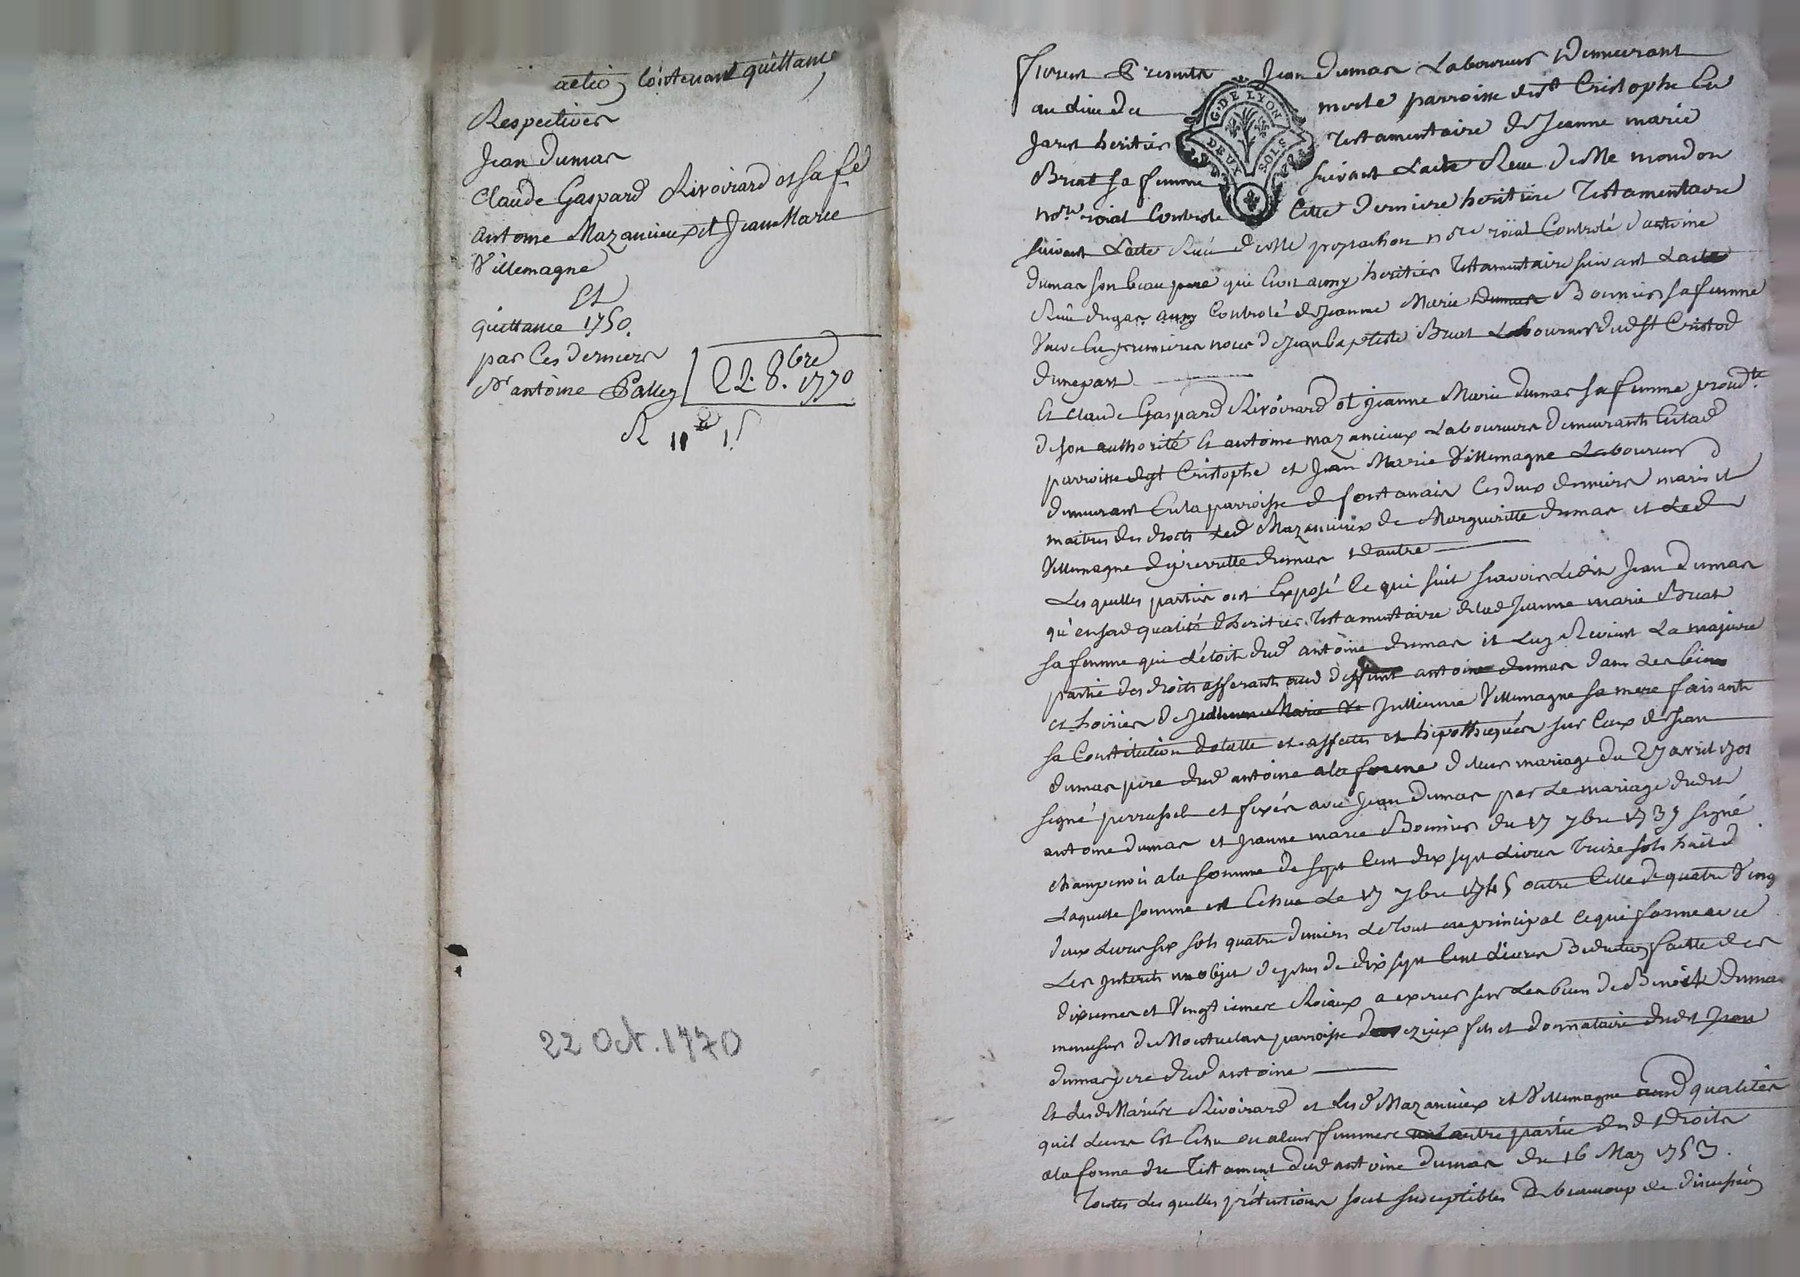 actio, Contenant quittance
Respectives
Jean Dumas
Claude Gaspard Rivoirard et sa fe
antoine Mazancieux et Jean Marie
Villemagne
Et
quittance 1750.
par Ces derniers
Sr antoine Palley
22. 8.bre
1770
R 11
22 Oct. 1770
Furent Presents Jean dumas Laboureur Demeurant
au Lieu du parroisse de st Cristophe En
G. DE LYON
DEUX SOLS
Jarest heritier Testamentaire de Jeanne marie
Bruat sa femme suivant Lacte Receu de Me moudon
nore roial Controlé Cette derniere heritiere Testamentaire
suivant Lacte Recu de Me nore roial Controlé d'antoine
dumas son beau pere qui Etoit aussy heritier Testamentaire suivant Lacte
Recu dugas aussy Controlé de Jeanne Marie Bonnier sa femme
Veuve En premieres noces de Jean baptiste Bruat Laboureur dud st Cristod
dunepart
Et Claude Gaspard Rivoirard et Jeanne Marie dumas sa femme proced.te
de son authorité Et antoine mazancieux Laboureurs demeurants En lad
parroisse de st Cristophe et Jean Marie Villemagne Laboureur
demeurant En la parroisse de fontanais Ces deux derniers maris et
maitres des droits Led Mazancieux de Marguerite dumas et Led
Villemagne de pierrette dumas dautre
Lesquelles parties ont Exposé Ce qui suit scavoir Ledit Jean dumas
qu'en sad qualité dheritier Testamentaire de lad Jeanne marie Bruat
sa femme qui L'étoit dud antoine dumas il Luy Revient La majeure
partie des droits afferants aud deffunt antoine dumas dans Les biens
et hoiries de Jullienne Villemagne sa mere faisants
sa Constitution dotalle et affectés et hipothequés sur Ceux de Jean
dumas pere dud antoine ala forme de leur mariage du 27 avril 1701
signé perrussel et fixés avec Jean dumas par Le mariage dudit
antoine dumas et Jeanne marie Bonnier du 17 7bre 1737 signé
champenois ala somme de sept Cent dix sept Livres treize sols huit d
Laquelle somme est Echue Le 17 7bre 1745 outre Celle de quatre Vingt
deux Livres six sols quatre deniers Le tout en principal Ce qui forme avec
Les Interets un objet de plus de dix sept Cent Livres deduction faitte des
dixiemes et Vingtiemes Roiaux a exercer sur Les biens de Benoist dumas
parroisse fils et donnataire dudit Jean
dumas pere dud antoine
Et Lesd Mariés Rivoirard et Lesd Mazancieux et Villemagne ausd qualités
quil Leurs Est Echu ou aleurs femmes autre partie desd droits
ala forme du Testament dud antoine dumas du 16 May 1753.
Toutes Lesquelles prétentions sont susceptibles de beaucoup de discussion